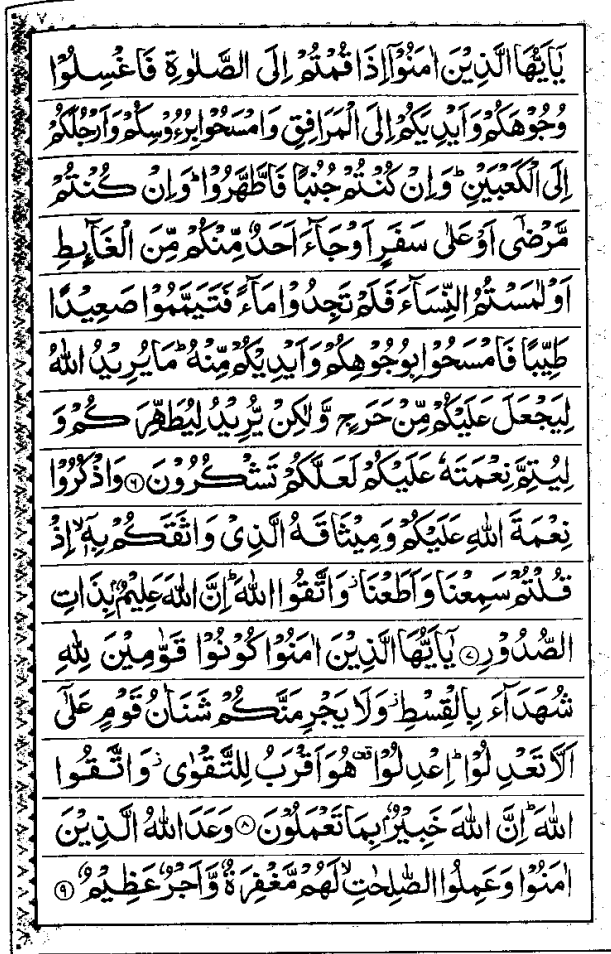 يٰۤاَيُّهَا الَّذِيْنَ اٰمَنُوْۤا اِذَا قُمْتُمْ اِلَى الصَّلٰوةِ فَاغْسِلُوْا
وُجُوْهَكُمْ وَاَيْدِيَكُمْ اِلَى الْمَرَافِقِ وَامْسَحُوْا بِرُءُوْسِكُمْ وَاَرْجُلَكُمْ
اِلَى الْكَعْبَيْنِ ؕ وَاِنْ كُنْتُمْ جُنُبًا فَاطَّهَّرُوْا ؕ وَاِنْ كُنْتُمْ
مَّرْضٰۤى اَوْ عَلٰى سَفَرٍ اَوْ جَآءَ اَحَدٌ مِّنْكُمْ مِّنَ الْغَآئِطِ
اَوْ لٰمَسْتُمُ النِّسَآءَ فَلَمْ تَجِدُوْا مَآءً فَتَيَمَّمُوْا صَعِيْدًا
طَيِّبًا فَامْسَحُوْا بِوُجُوْهِكُمْ وَاَيْدِيْكُمْ مِّنْهُ ؕ مَا يُرِيْدُ اللّٰهُ
لِيَجْعَلَ عَلَيْكُمْ مِّنْ حَرَجٍ وَّلٰكِنْ يُّرِيْدُ لِيُطَهِّرَكُمْ وَ
لِيُتِمَّ نِعْمَتَهٗ عَلَيْكُمْ لَعَلَّكُمْ تَشْكُرُوْنَ ۶ وَاذْكُرُوْا
نِعْمَةَ اللّٰهِ عَلَيْكُمْ وَمِيْثَاقَهُ الَّذِيْ وَاثَقَكُمْ بِهٖۤ ۙ اِذْ
قُلْتُمْ سَمِعْنَا وَاَطَعْنَا ۫ وَاتَّقُوا اللّٰهَ ؕ اِنَّ اللّٰهَ عَلِيْمٌۢ بِذَاتِ
الصُّدُوْرِ ۷ يٰۤاَيُّهَا الَّذِيْنَ اٰمَنُوْا كُوْنُوْا قَوّٰمِيْنَ لِلّٰهِ
شُهَدَآءَ بِالْقِسْطِ ۫ وَلَا يَجْرِمَنَّكُمْ شَنَاٰنُ قَوْمٍ عَلٰۤى
اَلَّا تَعْدِلُوْا ؕ اِعْدِلُوْا ۫ هُوَ اَقْرَبُ لِلتَّقْوٰى ۫ وَاتَّقُوا
اللّٰهَ ؕ اِنَّ اللّٰهَ خَبِيْرٌۢ بِمَا تَعْمَلُوْنَ ۸ وَعَدَ اللّٰهُ الَّذِيْنَ
اٰمَنُوْا وَعَمِلُوا الصّٰلِحٰتِ ۙ لَهُمْ مَّغْفِرَةٌ وَّاَجْرٌ عَظِيْمٌ ۹